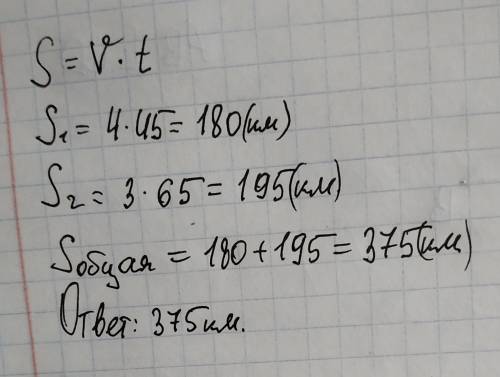 S = V · t
S₁ = 4 · 45 = 180(км)
S₂ = 3 · 65 = 195(км)
Sобщая = 180 + 195 = 375(км)
Ответ: 375км.